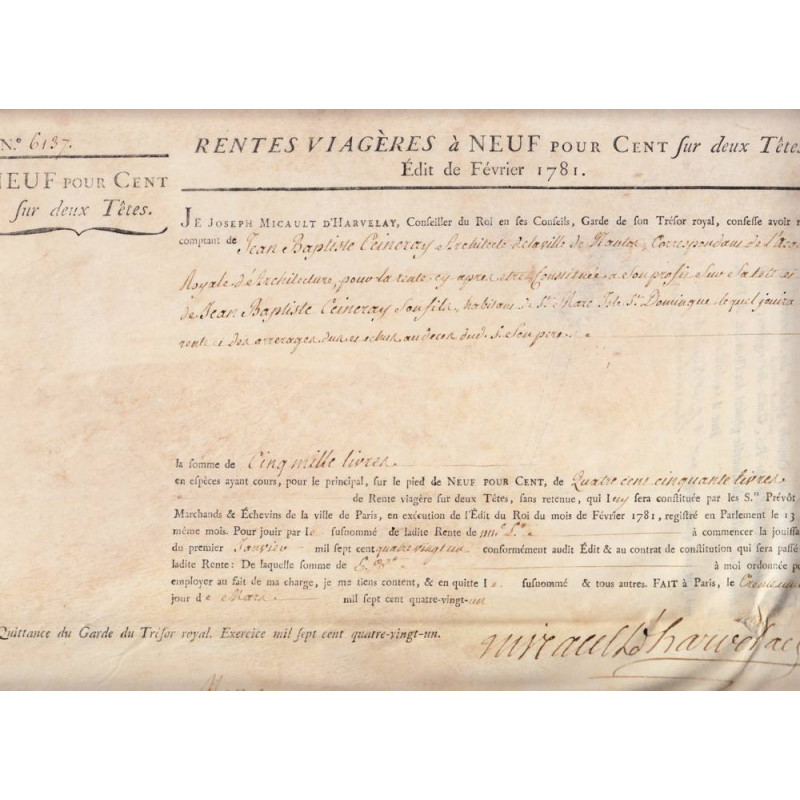 N.º 6137.
NEUF POUR CENT
sur deux Têtes.
RENTES VIAGÈRES à NEUF POUR CENT sur deux Têtes
Édit de Février 1781.
JE JOSEPH MICAULT D'HARVELAY, Conseiller du Roi en ses Conseils, Garde de son Trésor royal, confesse avoir r
comptant de Jean Baptiste Ceineray Architecte de la ville de Nantes, Correspondant de l'Aca
Royale d'Architecture, pour la rente cy apres etre Constituée a son profit Sur Sa tete et
de Jean Baptiste Ceineray Son fils, habitant de St. Marc Isle St. Domingue lequel jouira
rente et des arrerages dus et echus au deces dud. S. Son pere
la somme de Cinq mille livres
en espèces ayant cours, pour le principal, sur le pied de NEUF POUR CENT, de Quatre cent cinquante livres
de Rente viagère sur deux Têtes, sans retenue, qui luy sera constituée par les S.rs Prévôt
Marchands & Échevins de la ville de Paris, en exécution de l'Édit du Roi du mois de Février 1781, registré en Parlement le 13
même mois. Pour jouir par le susnommé de ladite Rente de à commencer la jouissa
du premier Janvier mil sept cent quatrevingt un conformément audit Édit & au contrat de constitution qui sera passé
ladite Rente: De laquelle somme de à moi ordonnée po
employer au fait de ma charge, je me tiens content, & en quitte le susnommé & tous autres. FAIT à Paris, le
jour de Mars mil sept cent quatre-vingt-un
Quittance du Garde du Trésor royal. Exercice mil sept cent quatre-vingt-un.
micault d'harvelay